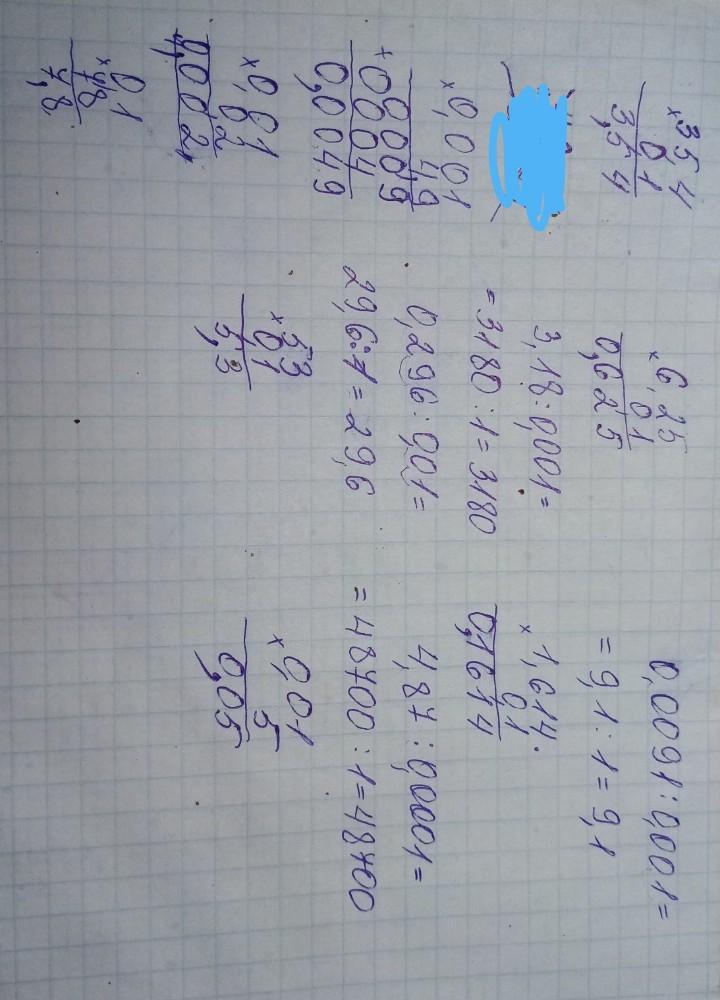 ×35,4
0,1
3,54
×0,001
4,9
+0009
0004
0,0049
×0,01
0,2
0,002
×0,1
78
7,8
×6,25
0,1
0,625
3,18:0,001=
=3180:1=3180
0,296:0,01=
29,6:1=29,6
×53
0,1
5,3
0,0091:0,001=
=9,1:1=9,1
×1,614
0,1
0,1614
4,87:0,0001=
=48700:1=48700
×0,01
5
0,05